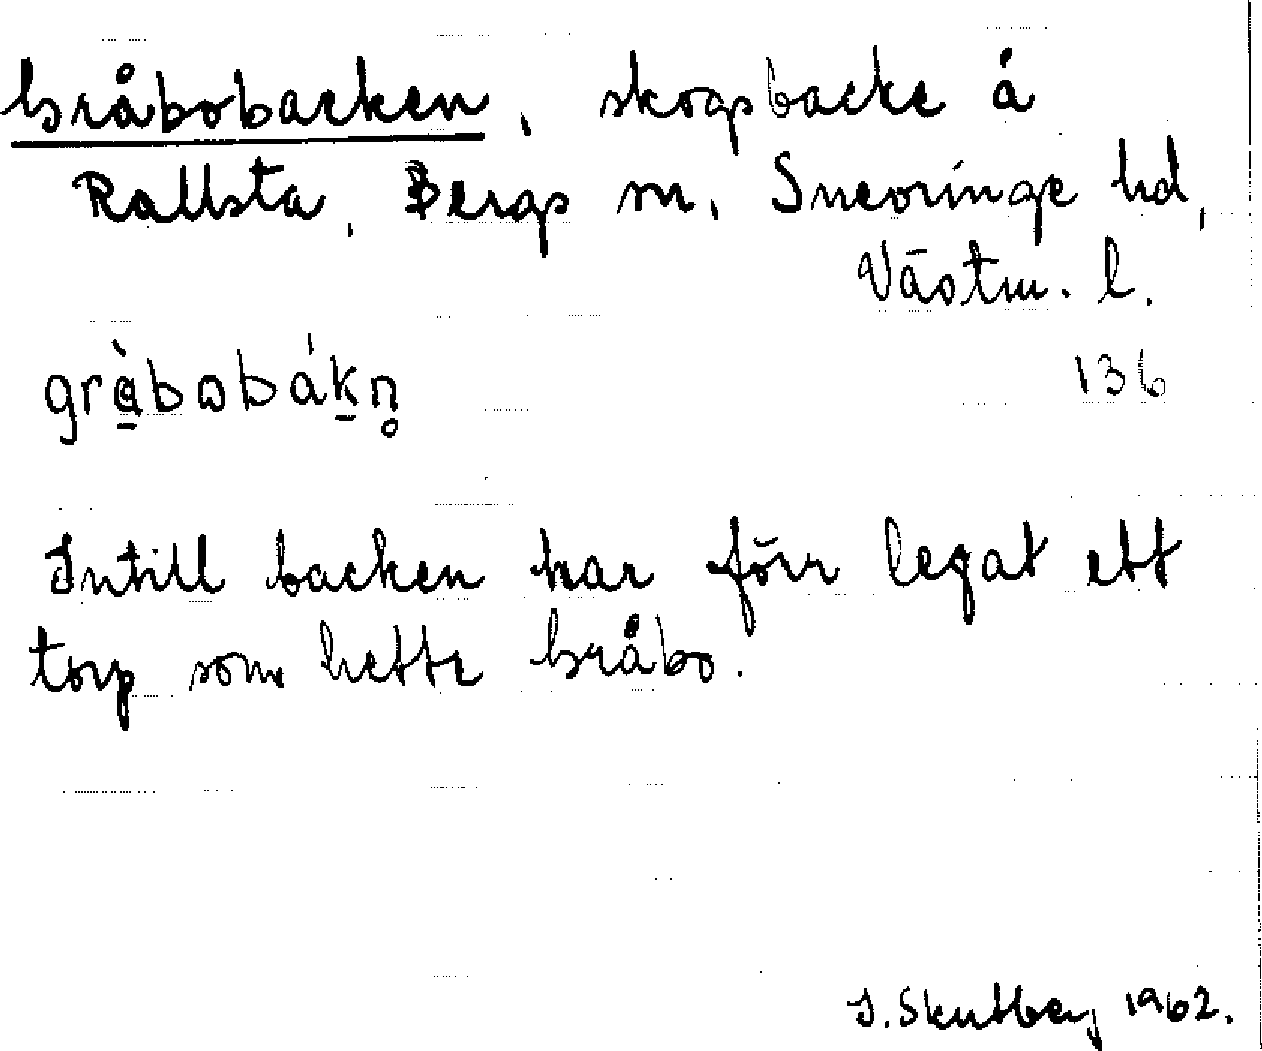 Gråbobacken, skogsbacke å
Rallsta, Bergs sn, Snevringe hd,
Västm. l.
gràbobákn̥
136
Intill backen har förr legat ett
torp som hette Gråbo.
J. Skutberg 1962.